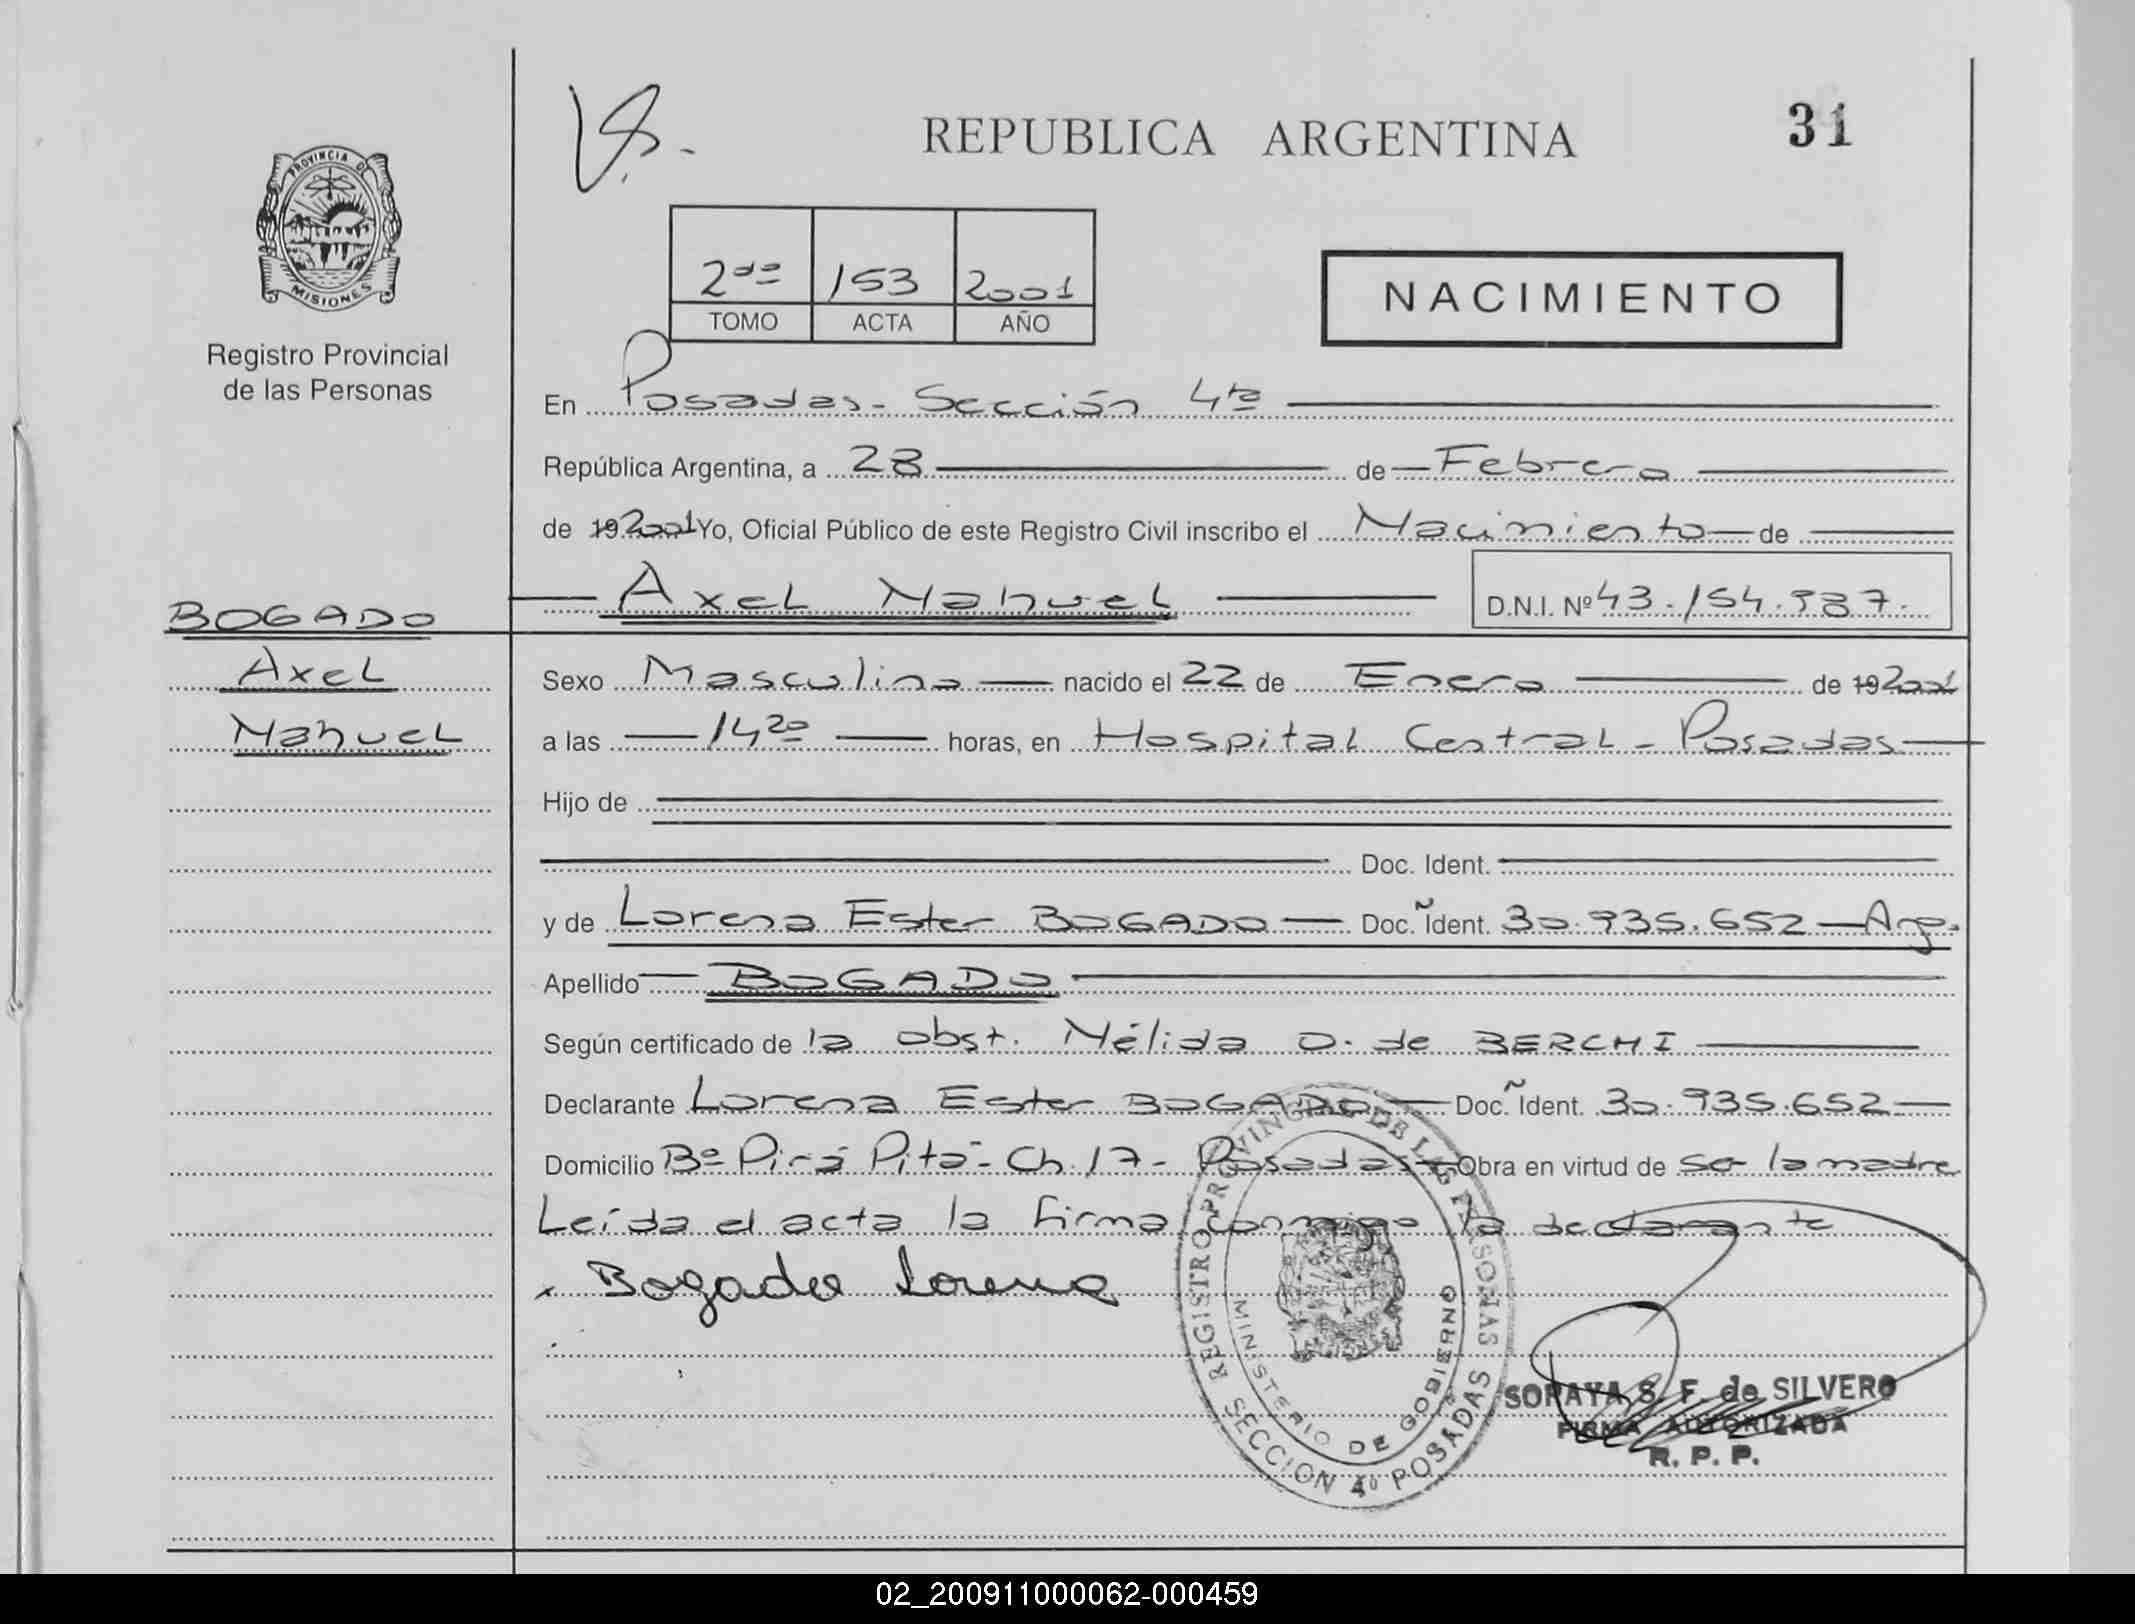 REPUBLICA ARGENTINA
31
PROVINCIA DE
MISIONES
Registro Provincial
de las Personas
2do 153 2001
TOMO ACTA AÑO
NACIMIENTO
En Posadas - Sección 4ta
República Argentina, a 28 de Febrero
de 19 2001 Yo, Oficial Público de este Registro Civil inscribo el Nacimiento de
Axel Nahuel
D.N.I. Nº 43.154.987.
BOGADO
Axel
Nahuel
Sexo Masculino nacido el 22 de Enero de 19 2001
a las 14 20 horas, en Hospital Central - Posadas
Hijo de
Doc. Ident.
y de Lorena Ester BOGADO Doc. Ident. 30.935.652 - Arg.
Apellido BOGADO
Según certificado de la obst. Nélida O. de BERCHI
Declarante Lorena Ester BOGADO Doc. Ident. 30.935.652
Domicilio Bº Pirá Pitá - Ch. 17 - Posadas Obra en virtud de ser la madre
Leída el acta la firma conmigo la declarante
x Bogado Lorena
REGISTRO PROVINCIAL DE LAS PERSONAS
MINISTERIO DE GOBIERNO
SECCION 4º POSADAS
SORAYA S. F. de SILVERO
FIRMA AUTORIZADA
R. P. P.
02_200911000062-000459